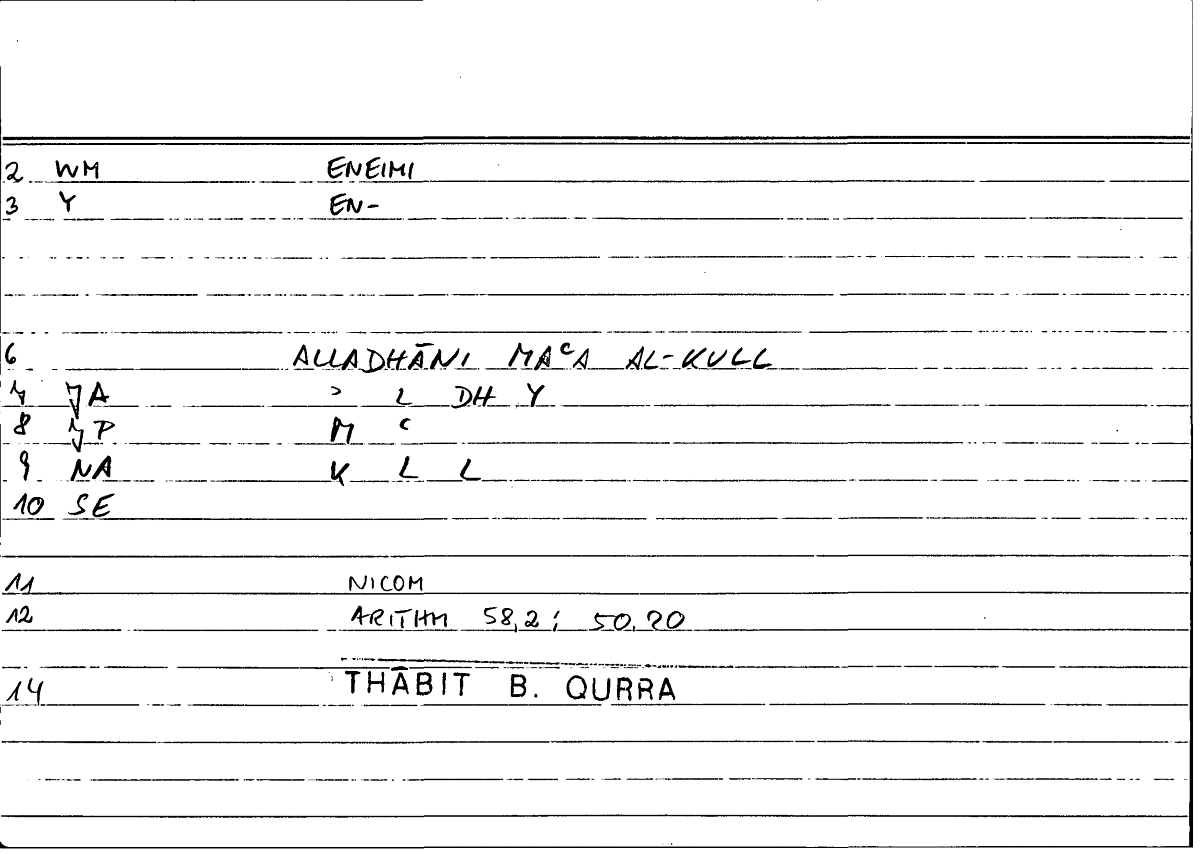 2 WM ENEIMI
3 Y EN-
6 ALLADHĀNI MAᶜA AL-KULL
A ʾ L DH Y
8 P M ᶜ
9 NA K L L
10 SE
11 NICOM
12 ARITHM 58,2; 50,20
14 THĀBIT B. QURRA